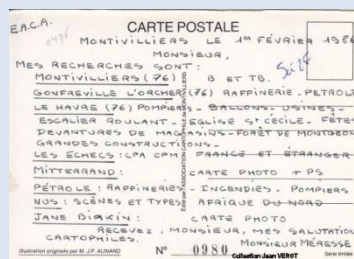 E.A.C.A.
CARTE POSTALE
MONTIVILLIERS LE 1er FÉVRIER 1986
MONSIEUR,
MES RECHERCHES SONT :
MONTIVILLIERS (76) B ET TB.
GONFREVILLE L'ORCHER (76) RAFFINERIE - PETROLE
LE HAVRE (76) POMPIERS - BALLONS - USINES -
ESCALIER ROULANT - EGLISE St CECILE - FÊTES
DEVANTURES DE MAGASINS - FORÊT DE MONTGEON
GRANDES CONSTRUCTIONS -
LES ÉCHECS : CPA CPM FRANCE ET ÉTRANGER
MITTERRAND : CARTE PHOTO + PS
PÉTROLE : RAFFINERIES - INCENDIES - POMPIERS
NUS : SCÈNES ET TYPES AFRIQUE DU NORD
JANE BIRKIN : CARTE PHOTO
RECEVEZ, MONSIEUR, MES SALUTATIONS
CARTOPHILES.
MONSIEUR MÉRESSE
Illustration originale par M. J.P. AUNAND
N° 0980
Collection Jean VEROT
Série limitée